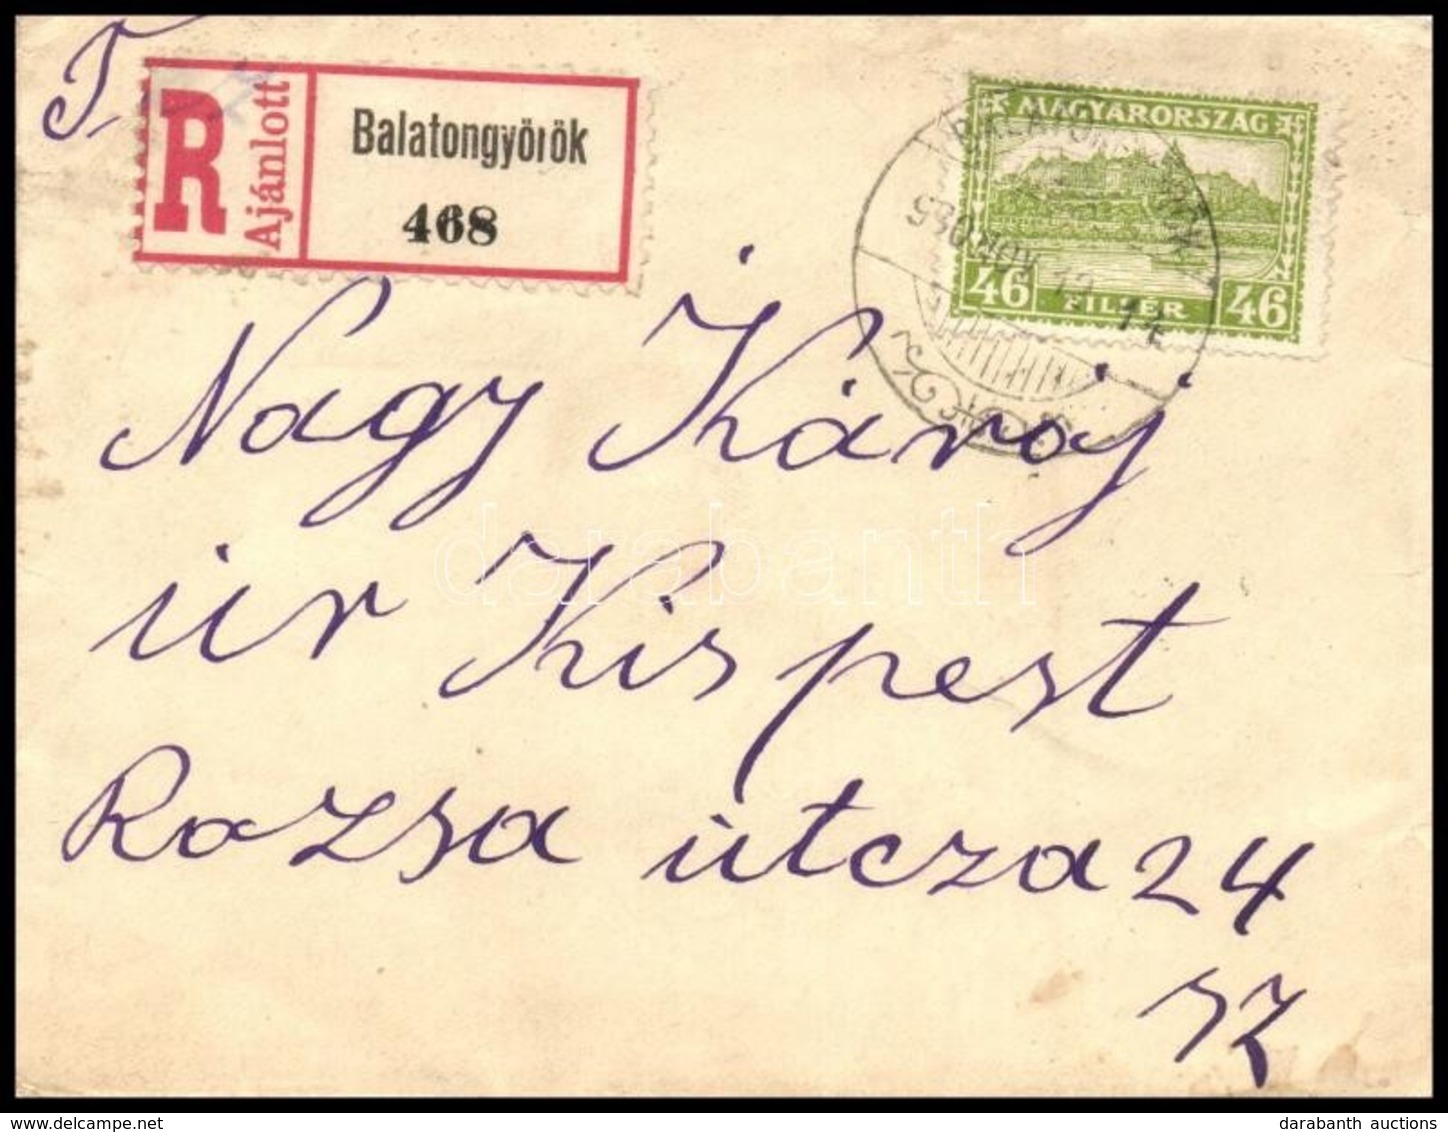 T.
R
Ajánlott
Balatongyörök
468
MAGYARORSZÁG
46 FILLÉR 46
Nagy Károj
úr Kispest
Rozsa útcza 24
SZ
darabanth
delcampe.net
darabanth auctions